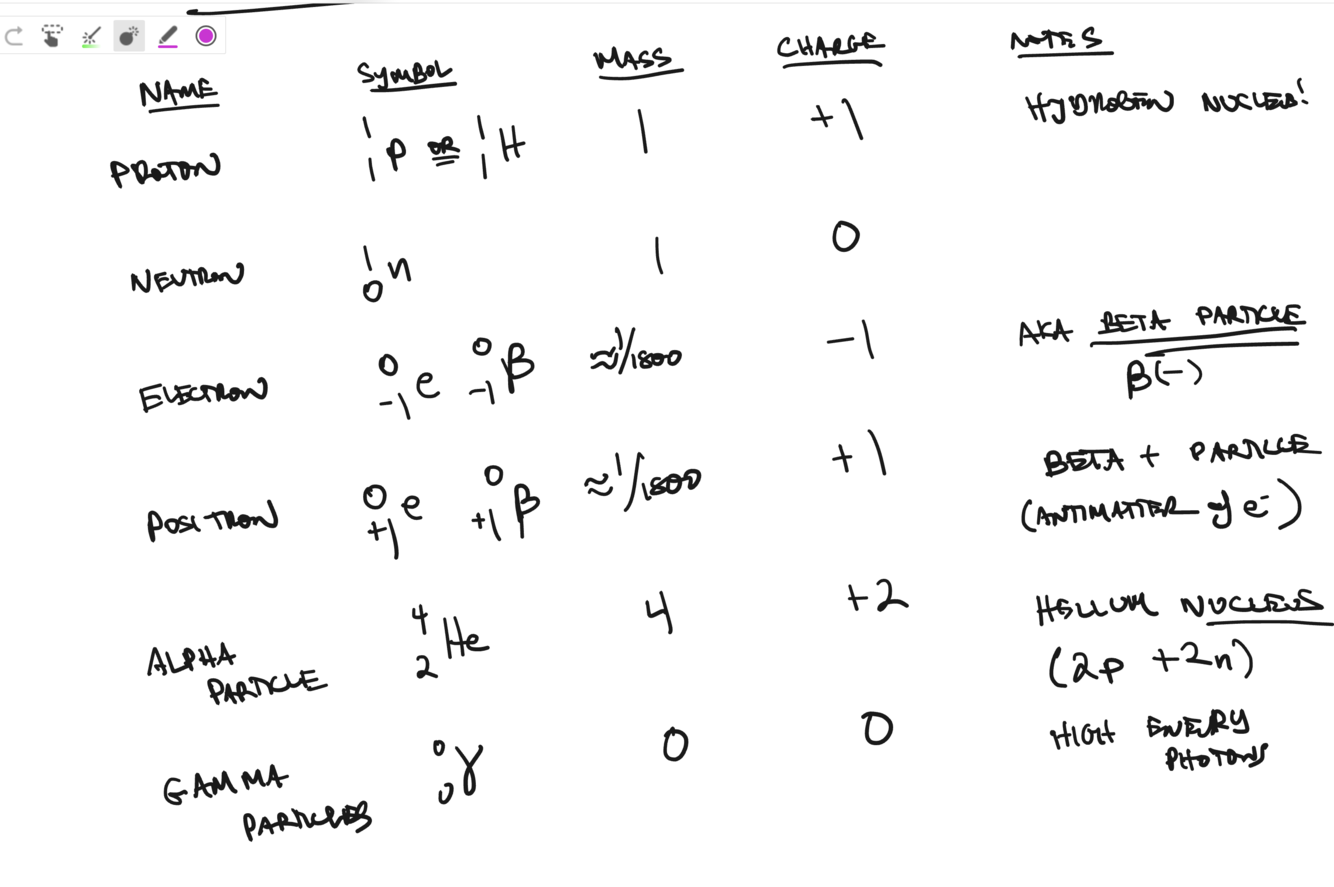 NAME SYMBOL MASS CHARGE NOTES
PROTON ¹₁P OR ¹₁H 1 +1 HYDROGEN NUCLEI
NEUTRON ¹₀n 1 0
ELECTRON ⁰₋₁e ⁰₋₁β ≈1/1800 -1 AKA BETA PARTICLE
β(-)
POSITRON ⁰₊₁e ⁰₊₁β ≈1/1800 +1 BETA + PARTICLE
(ANTIMATTER of e⁻)
ALPHA ⁴₂He 4 +2 HELIUM NUCLEUS
PARTICLE (2p +2n)
GAMMA ⁰₀γ 0 0 HIGH ENERY
PARTICLES PHOTONS